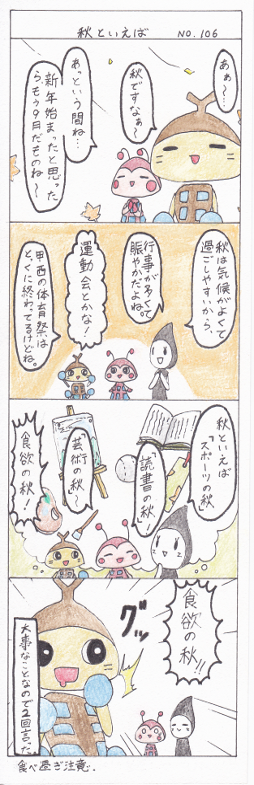 秋といえば NO.106
あぁ〜…
秋ですなぁ〜
あっという間ね…
新年始まったと思った
ら、もう9月だもね〜
秋は気候がよくて
過ごしやすいから、
行事が多くて
賑やかだよね。
運動会とかな!
甲西の体育祭は
とっくに終わってるけどね。
秋といえば
「スポーツの秋」
「読書の秋」
芸術の秋〜
食欲の秋!
食欲の秋!!
グッ
大事なことなので2回言った
食べ過ぎ注意.